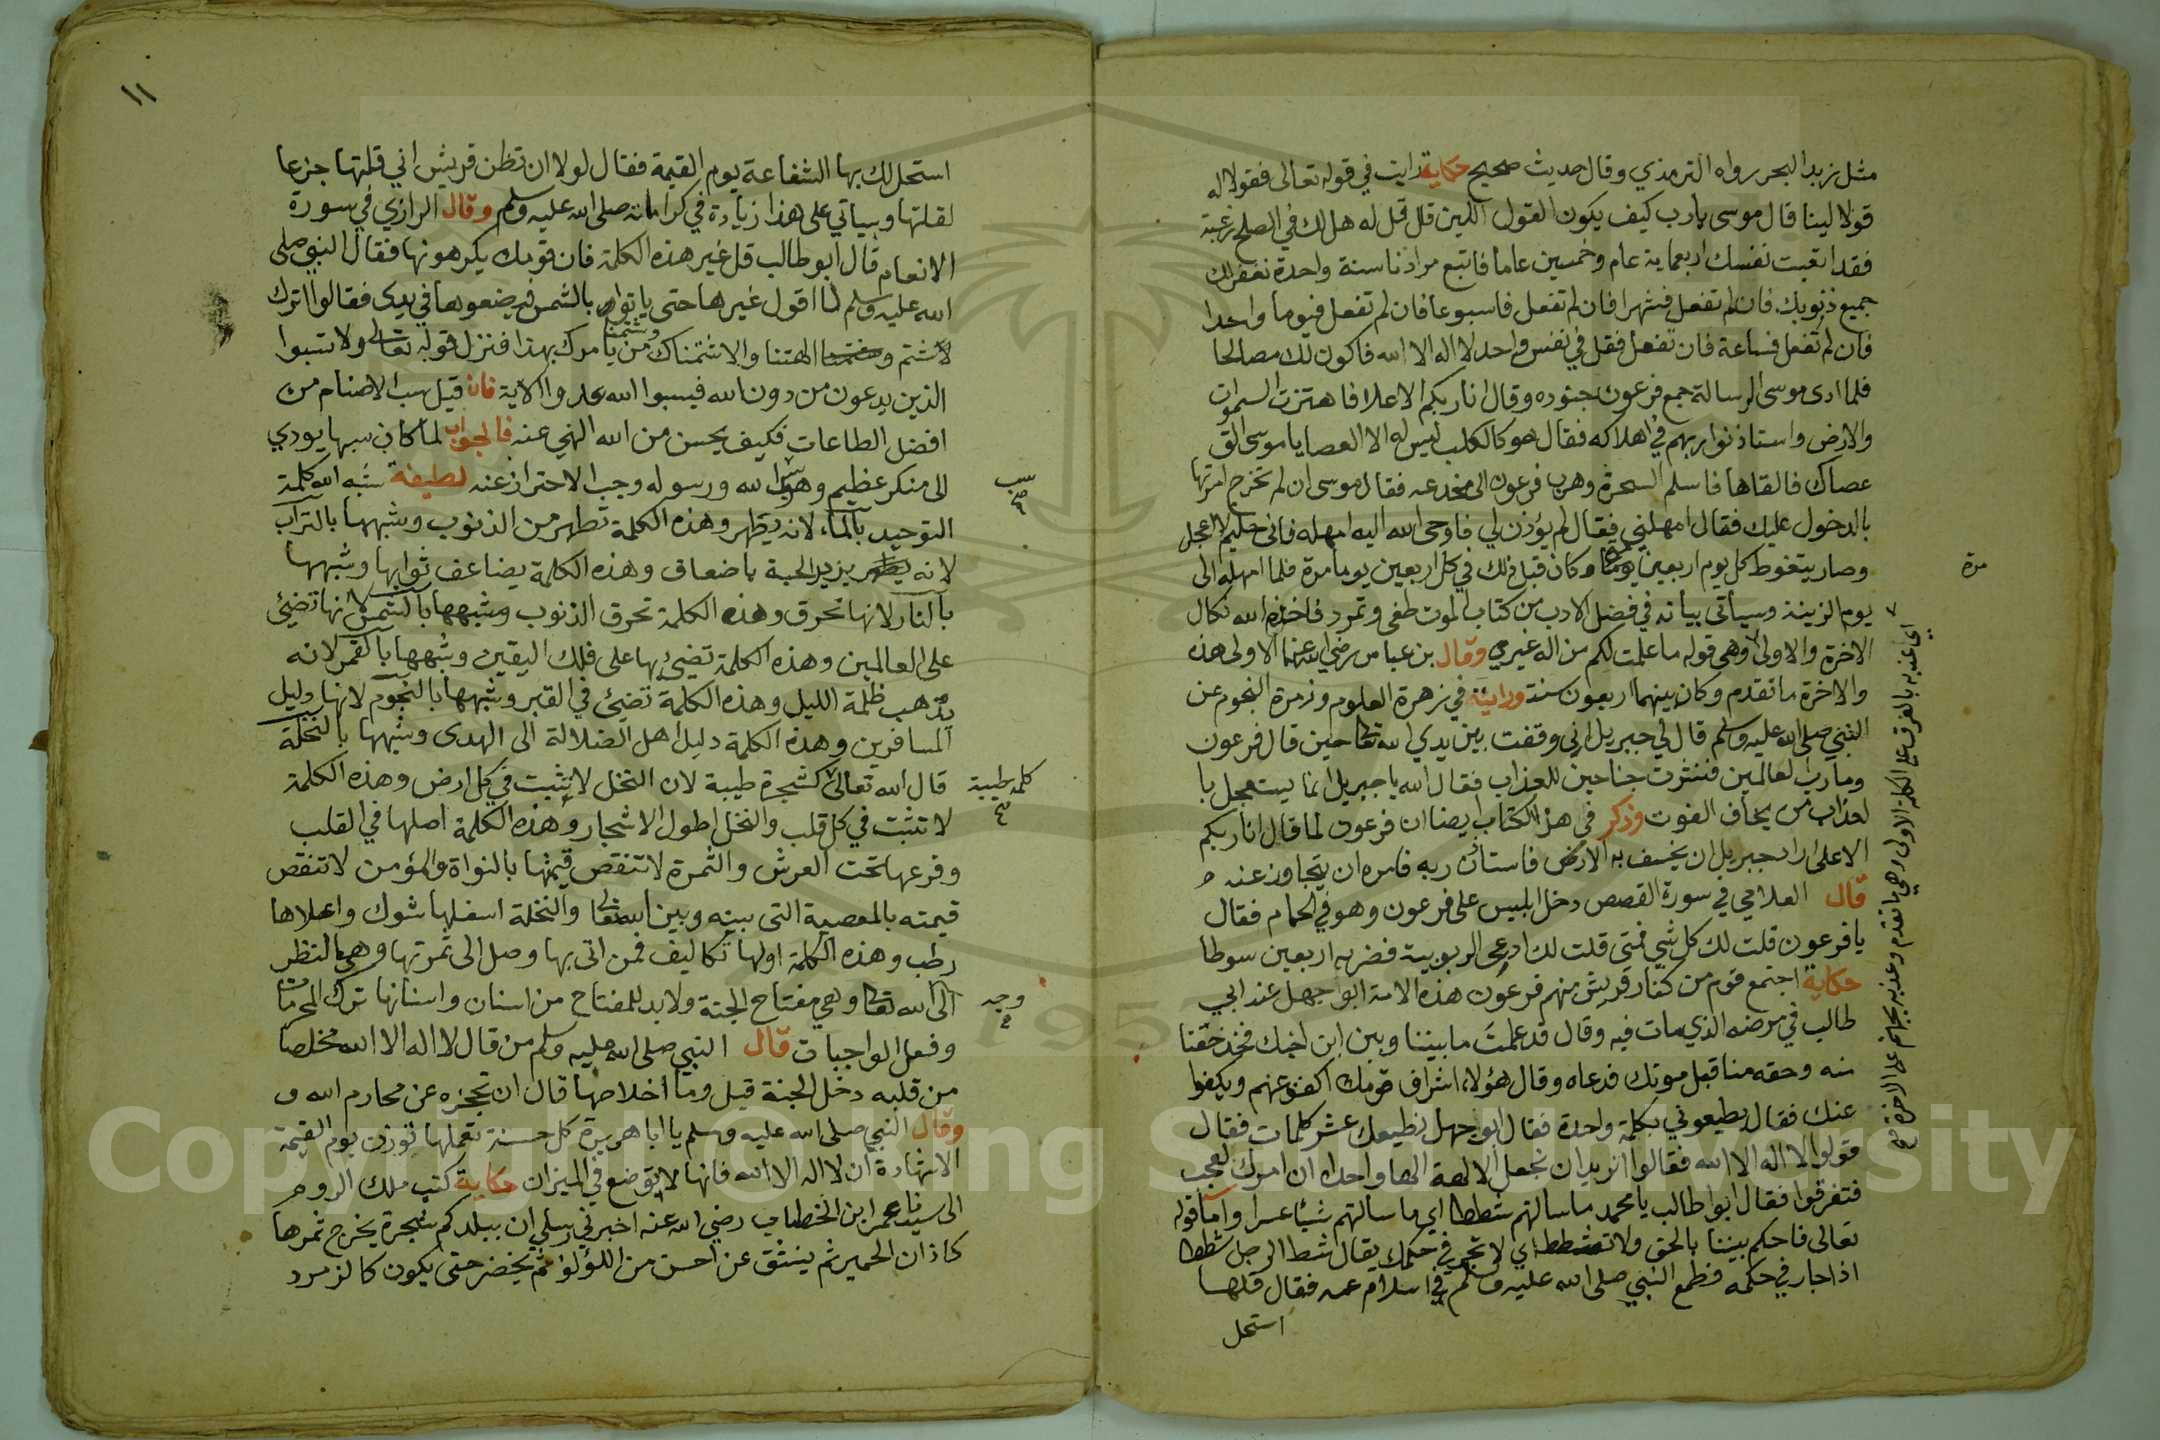 مثل زبد البحر رواه الترمذي وقال حديث صحيح حكاية رايت في قوله تعالى فقولا له
قولا لينا قال موسى يارب كيف يكون القول اللين قال قل له هل لك في الصلح رغبة
فقد اتعبت نفسك اربعماية عام وخمسين عاما فاتبع مرادنا سنة واحدة نغفر لك
جميع ذنوبك فان لم تفعل فشهرا فان لم تفعل فاسبوعا فان لم تفعل فيوما واحدا
فان لم تفعل فساعة فان لم تفعل فقل في نفس واحد لا اله الا الله فاكون لك مصالحا
فلما ادى موسى الرسالة جمع فرعون جنوده وقال انا ربكم الاعلا فاهتزت السموات
والارض واستاذنوا ربهم في اهلاكه فقال هو كالكلب ليس له الا العصا يا موسى الق
عصاك فالقاها فاسلم السحرة وهرب فرعون الى مخدعه فقال موسى ان لم تخرج امرتها
بالدخول عليك فقال امهلني فقال لم يؤذن لي فاوحى الله اليه امهله فاني حليم لا اعجل
وصار يتغوط كل يوم اربعين وكان قبل ذلك في كل اربعين يوما مرة فلما امهله الى
مرة
يوم الزينة وسيأتى بيانه في فضل الادب من كتاب الموت طغى وتمرد فاخذه الله نكال
الاخرة والاولى وهي قوله ما علمت لكم من اله غيري وقال بن عباس رضي الله عنهما الاولى هذه
والاخرة ما تقدم وكان بينهما اربعون سنة ورايت في نزهرة العلوم وزمرة النجوم عن
النبي صلى الله عليه وسلم قال لي جبريل اني وقفت بين يدي الله تعالى حين قال فرعون
وما رب العالمين فنشرت جناحين للعذاب فقال الله يا جبريل انما يستعجل با
لعذاب من يخاف الفوت وذكر في هذا الكتاب ايضا ان فرعون لما قال انا ربكم
الاعلى اراد جبريل ان يخسف به الارض فاستاذن ربه فامره ان يتجاوز عنه
قال العلاءي في سورة القصص دخل ابليس على فرعون وهو في الحمام فقال
يا فرعون قلت لك كل شي فمتى قلت لك ادعى الربوبية فضربه اربعين سوطا
حكاية اجتمع قوم من كفار قريش منهم فرعون هذه الامة ابو جهل عند ابي
طالب في مرضه الذي مات فيه وقال قد علمت ما بيننا وبين ابن اخيك فخذ حقنا
منه وحقه منا قبل موتك فدعاه وقال هؤلاء اشراف قومك اكفف عنهم ويكفوا
عنك فقال يطيعوني بكلمة واحدة فقال ابو جهل نطيعك عشر كلمات فقال
قولوا لا اله الا الله فقالوا اتريد ان نجعل الالهة الها واحدا ان امرك لعجب
فتفرقوا فقال ابو طالب يا محمد ما سالتهم شططا اي ما سالتهم شيئا عسرا واما قوله
تعالى فاحكم بيننا بالحق ولا تشطط اي لا تجر في حكمك يقال شط الرجل شططا
اذا جار في حكمه فطمع النبي صلى الله عليه وسلم في اسلام عمه فقال قلها
استحل
اي عذبه بالغرق على الكلمة الاولى وهي ما تقدم وعذبه بجهنم على الاخرة
١١
استحل لك بها الشفاعة يوم القيمة فقال لولا ان تظن قريش اني قلتها جزعا
لقلتها وسيأتي على هذا زيادة في كراماته صلى الله عليه وسلم وقال الرازي في سورة
الانعام قال ابو طالب قل غير هذه الكلمة فان قومك يكرهونها فقال النبي صلى
الله عليه وسلم ما اقول غيرها حتى ياتوا بالشمس فيضعوها في يدي فقالوا اترك
شتم الهتنا والا شتمناك وشتمنا من يامرك بهذا فنزل قوله تعالى ولا تسبوا
الذين يدعون من دون الله فيسبوا الله عدوا الاية فان قيل سب الاصنام من
افضل الطاعات فكيف يحسن من الله النهي عنه فالجواب لما كان سبها يودي
الى منكر عظيم وهو سب الله ورسوله وجب الاحتراز عنه لطيفة شبه الله كلمة
سب
صح
التوحيد بالماء لانه يطهر وهذه الكلمة تطهر من الذنوب وشبهها بالتراب
لانه يزيد الحبة باضعاف وهذه الكلمة يضاعف ثوابها وشبهها
بالنار لانها تحرق وهذه الكلمة تحرق الذنوب وشبهها بالشمس لانها تضئ
على العالمين وهذه الكلمة تضئ بها على فلك اليقين وشبهها بالقمر لانه
يذهب ظلمة الليل وهذه الكلمة تضئ في القبر وشبهها بالنجوم لانها دليل
المسافرين وهذه الكلمة دليل اهل الضلالة الى الهدى وشبهها بالنخلة
قال الله تعالى كشجرة طيبة لان النخل لا يثبت في كل ارض وهذه الكلمة
كلمة طيبة
لا تثبت في كل قلب والنخل اطول الاشجار وهذه الكلمة اصلها في القلب
وفرعها تحت العرش والثمرة لا تنقص قيمتها بالنواة والمؤمن لا تنقص
قيمته بالمعصية التى بينه وبين الله تعالى والنخلة اسفلها شوك واعلاها
رطب وهذه الكلمة اولها تكاليف فمن اتى بها وصل الى ثمرتها وهي النظر
الى الله تعالى وهي مفتاح الجنة ولابد للمفتاح من اسنان واسنانها ترك المحرمات
وجه
وفعل الواجبات قال النبي صلى الله عليه وسلم من قال لا اله الا الله مخلصا
من قلبه دخل الجنة قيل وما اخلاصها قال ان تحجزه عن محارم الله و
وقال النبي صلى الله عليه وسلم يا ابا هريرة كل حسنة تعملها توزن يوم القيمة
الا شهادة ان لا اله الا الله فانها لا توضع في الميزان حكاية كتب ملك الروم
الى سيدنا عمر ابن الخطاب رضي الله عنه اخبرني رسلي ان ببلدكم شجرة يخرج ثمرها
كاذان الحمير ثم ينشق عن احسن من اللؤلؤ ثم يخضر حتى يكون كالزمرد
Copyright © King Saud University
1957